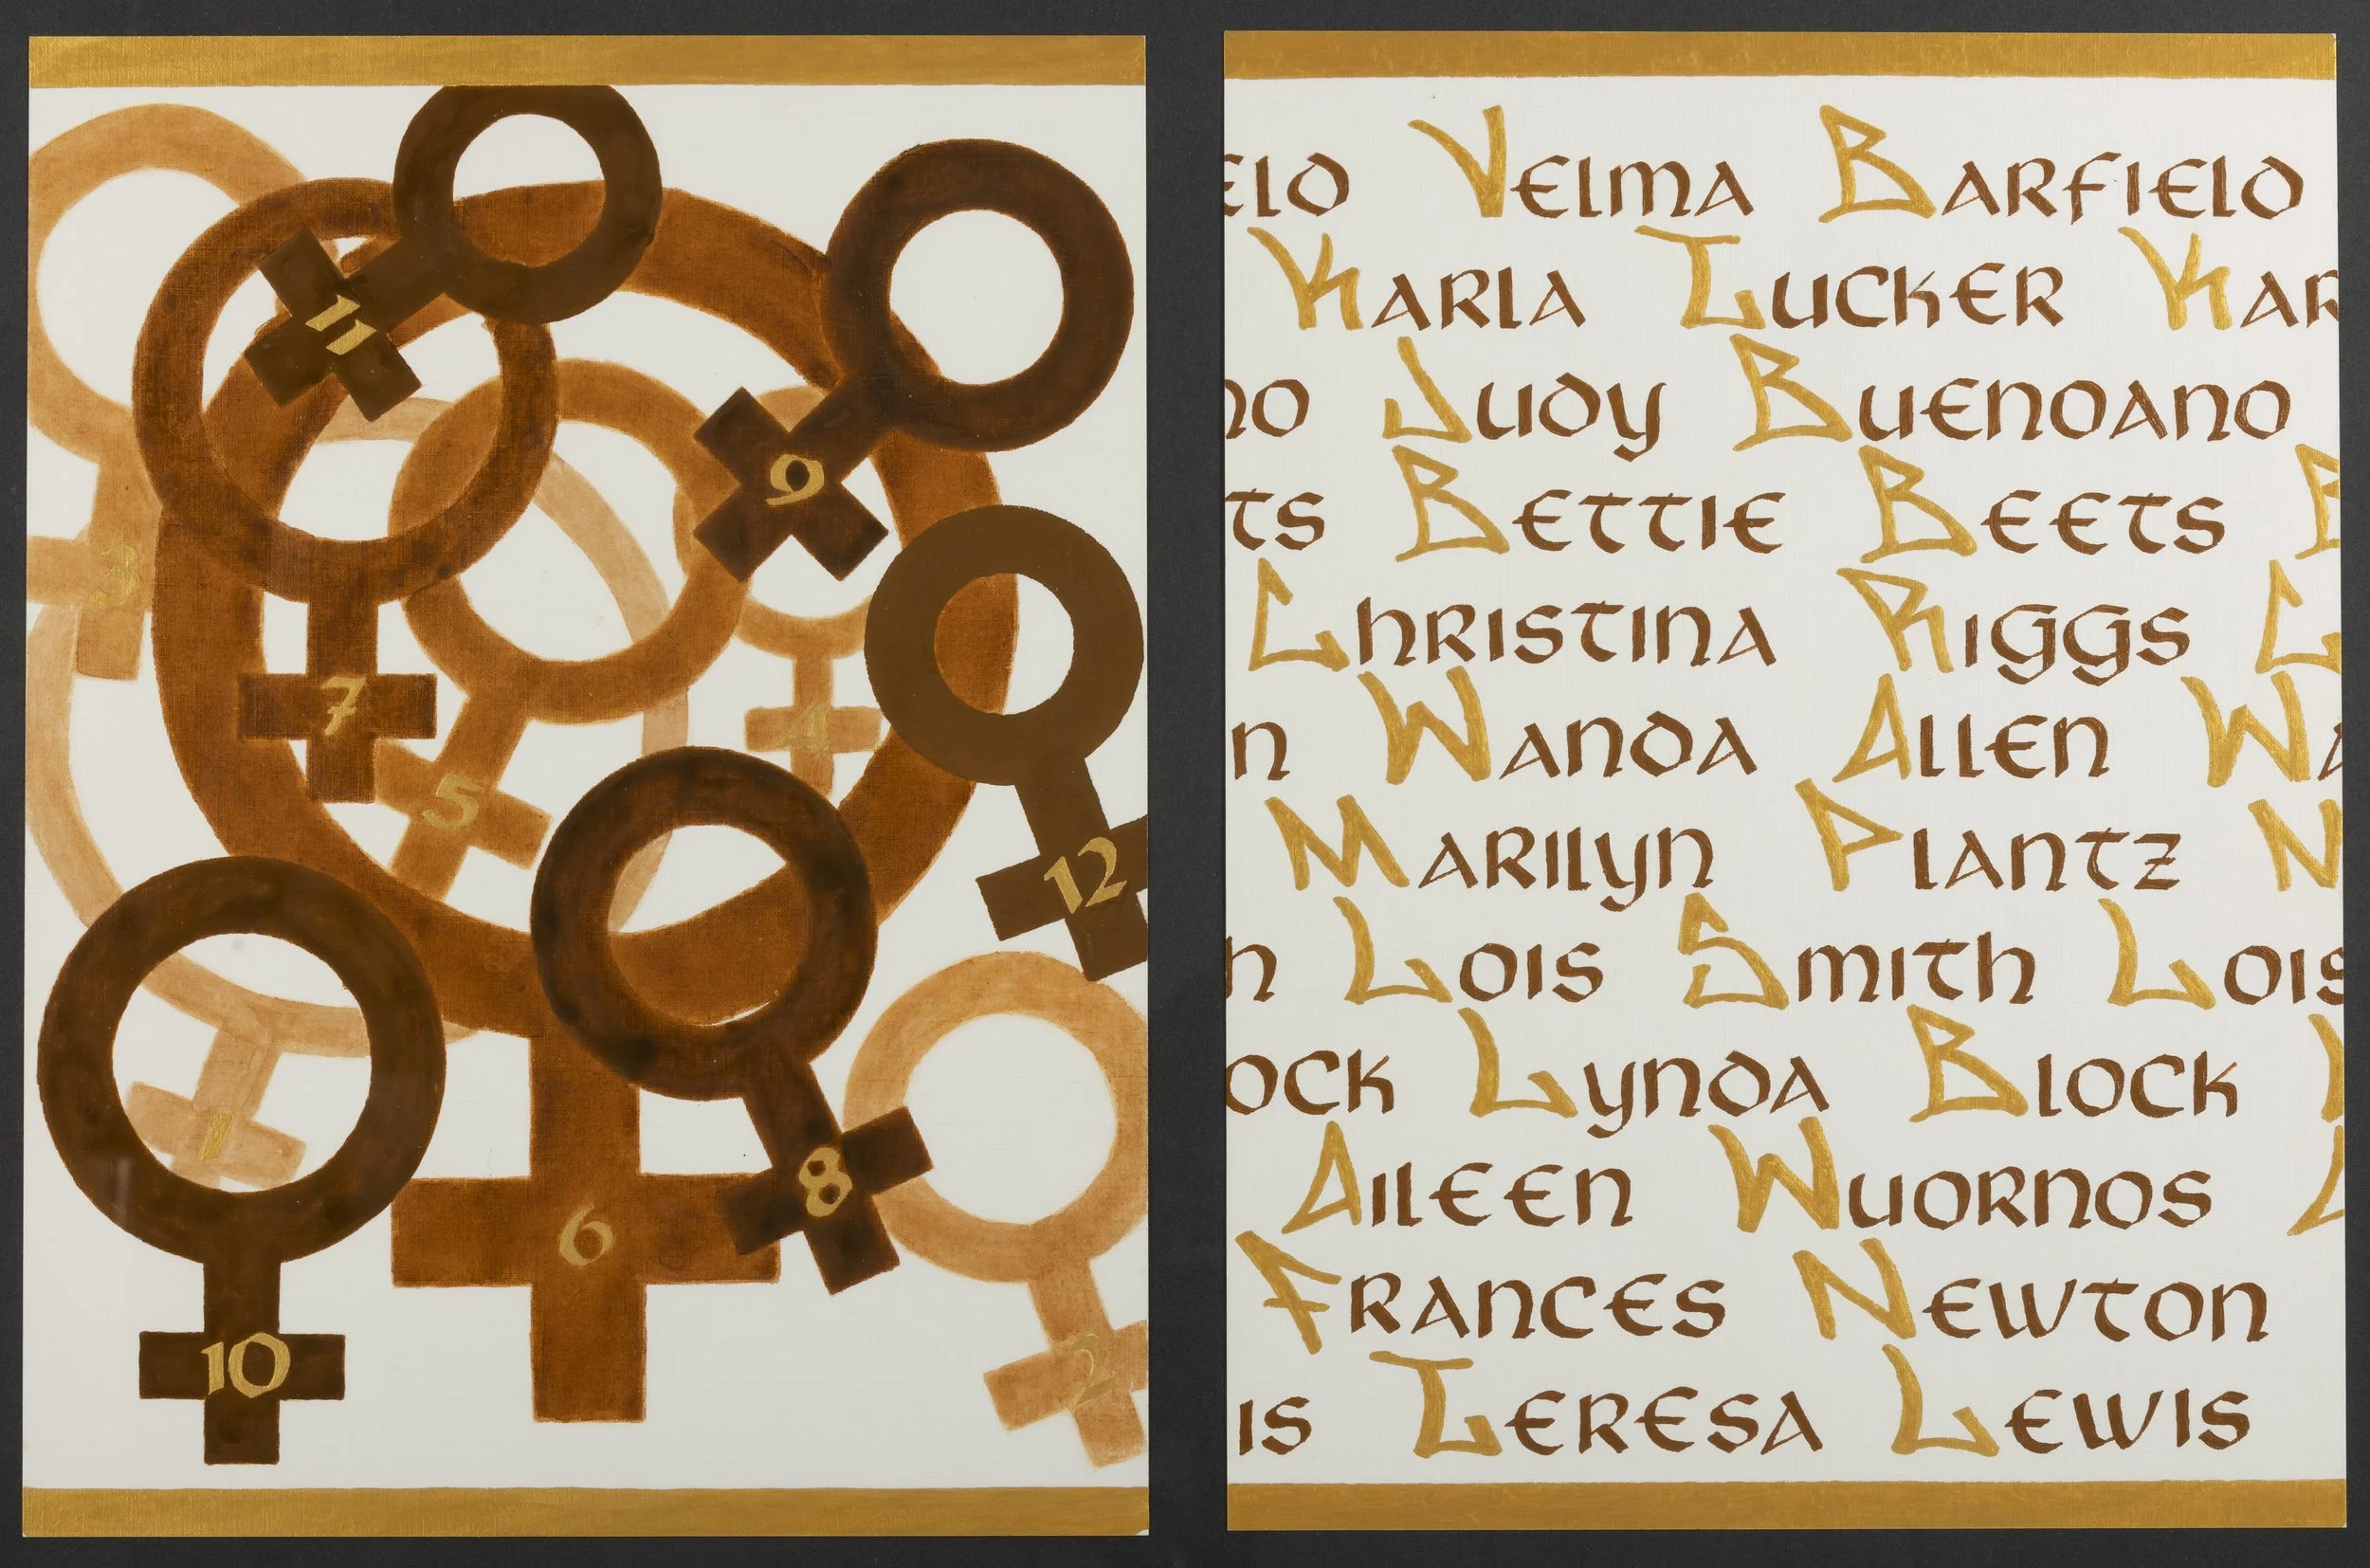 11
9
3
7
4
5
12
1
8
6
10
2
eld Velma Barfield
Karla Tucker Kar
no Judy Buenoano
ts Bettie Beets B
Christina Riggs C
n Wanda Allen Wa
Marilyn Plantz M
h Lois Smith Lois
ock Lynda Block
Aileen Wuornos A
Frances Newton
is Teresa Lewis